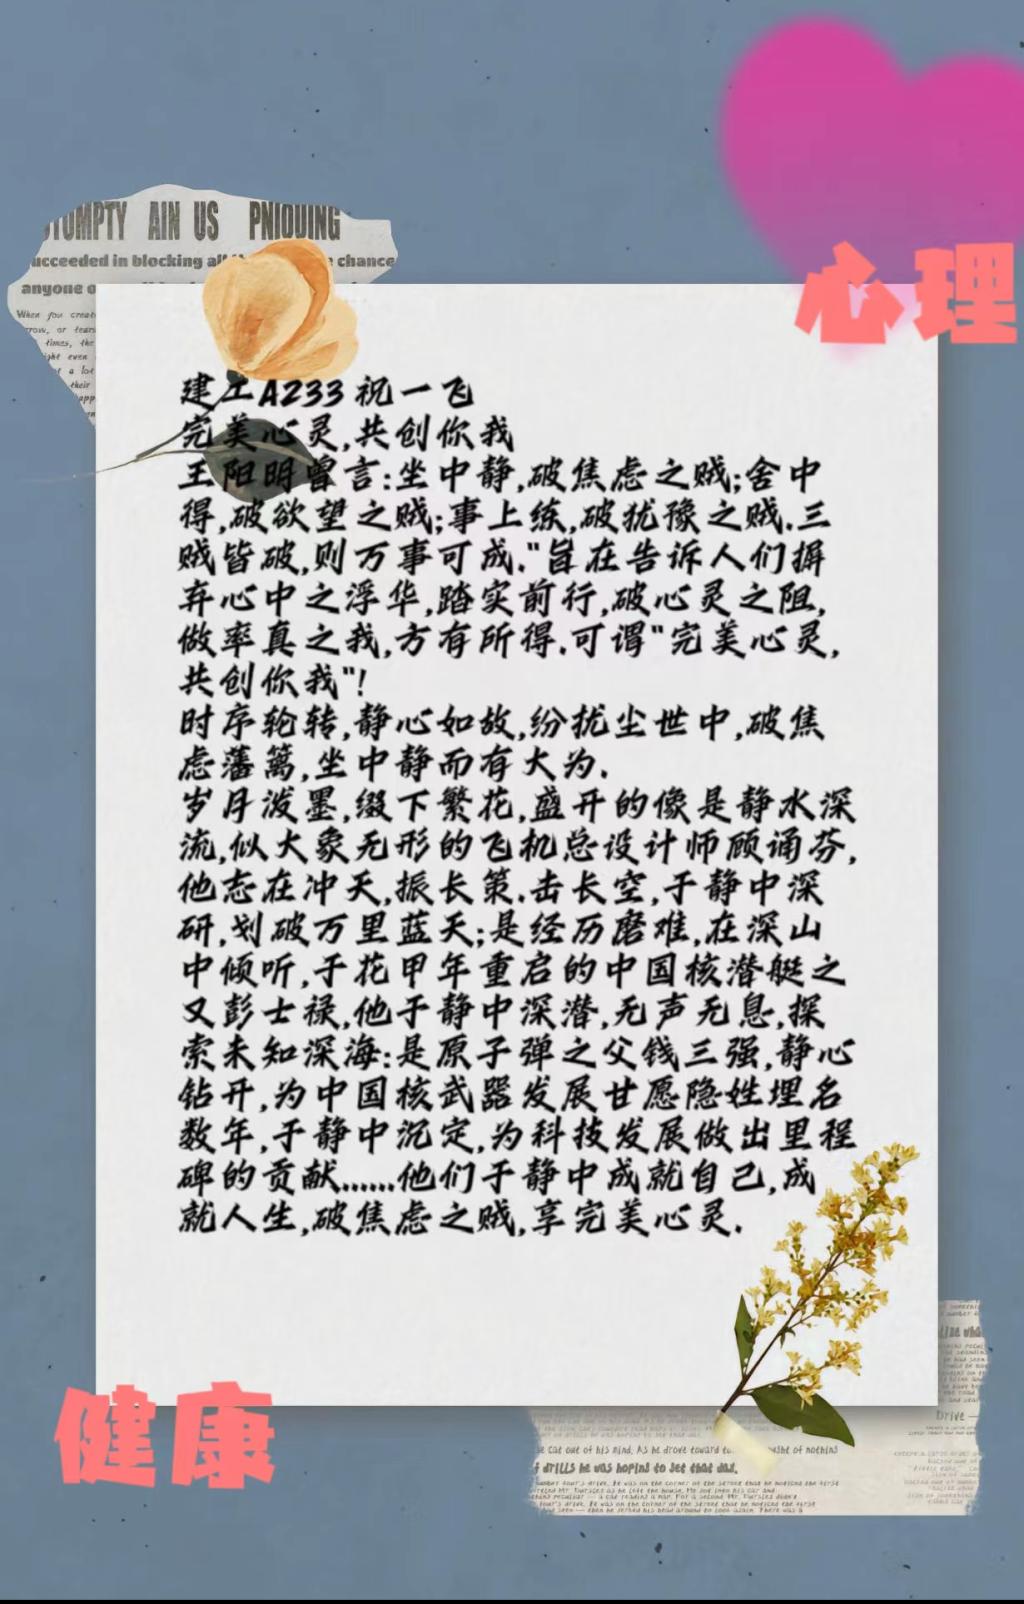 STUMPTY AIN US PNIOUING
ucceeded in blocking all
chance
anyone o
心理
建工A233 祝一飞
完美心灵,共创你我
王阳明曾言:坐中静,破焦虑之贼;舍中
得,破欲望之贼;事上练,破犹豫之贼.三
贼皆破,则万事可成."旨在告诉人们摒
弃心中之浮华,踏实前行,破心灵之阻,
做率真之我,方有所得.可谓"完美心灵,
共创你我"!
时序轮转,静心如故,纷扰尘世中,破焦
虑藩篱,坐中静而有大为.
岁月泼墨,缀下繁花,盛开的像是静水深
流,似大象无形的飞机总设计师顾诵芬,
他志在冲天,振长策.击长空,于静中深
研,划破万里蓝天;是经历磨难,在深山
中倾听,于花甲年重启的中国核潜艇之
又彭士禄,他于静中深潜,无声无息,探
索未知深海:是原子弹之父钱三强,静心
钻开,为中国核武器发展甘愿隐姓埋名
数年,于静中沉定,为科技发展做出里程
碑的贡献......他们于静中成就自己,成
就人生,破焦虑之贼,享完美心灵.
健康
e cat out of his mind. As he drove toward
of nothing
f drills he was hoping to see that day.
Drive —